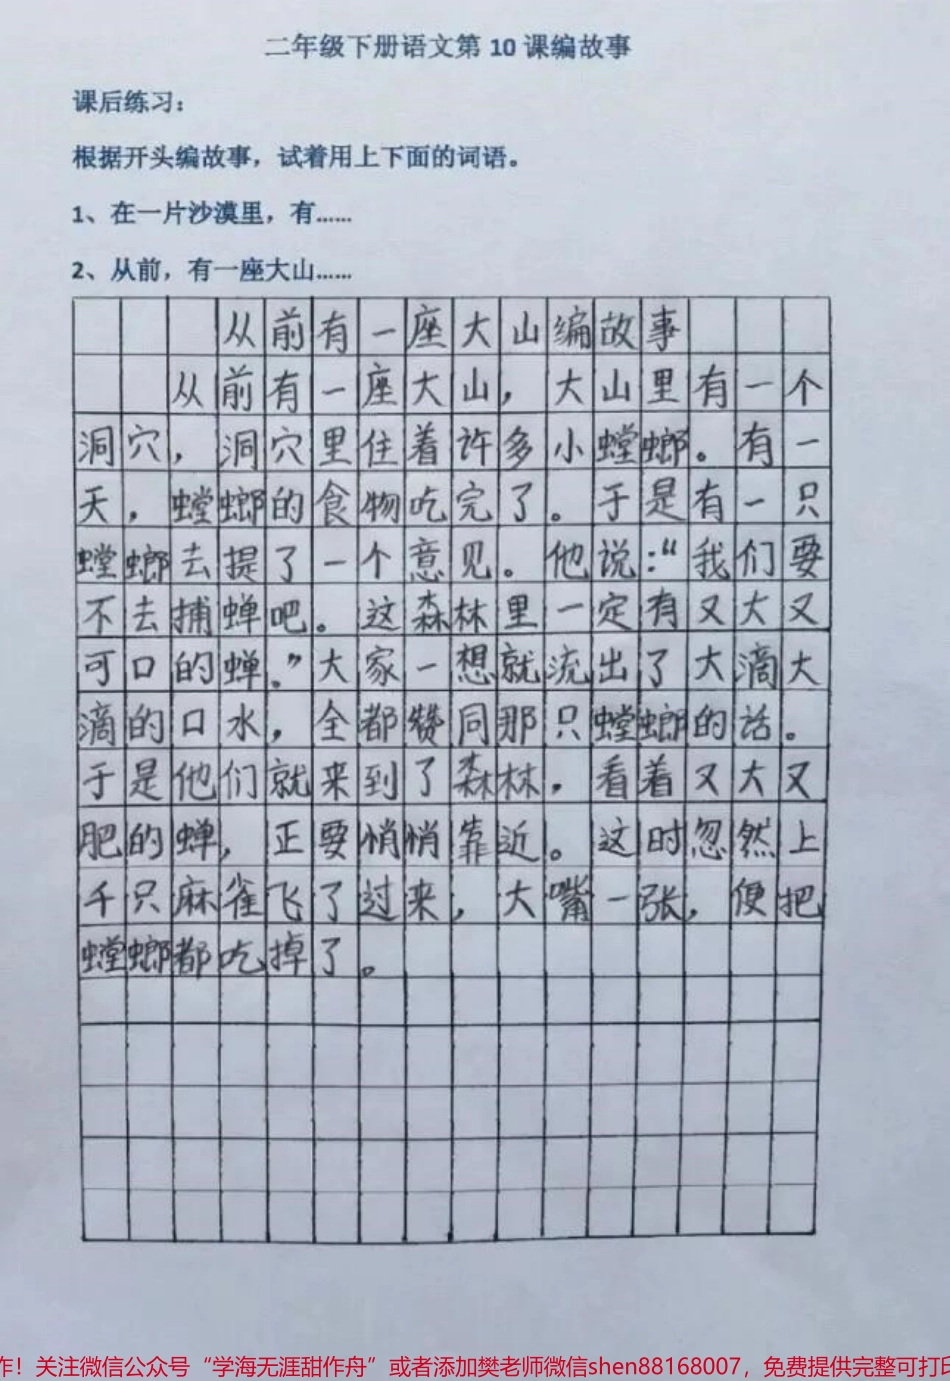 二年级下册语文第 10 课编故事
课后练习：
根据开头编故事，试着用上下面的词语。
1、在一片沙漠里，有……
2、从前，有一座大山……
从前有一座大山编故事
从前有一座大山，大山里有一个
洞穴，洞穴里住着许多小螳螂。有一
天，螳螂的食物吃完了。于是有一只
螳螂去提了一个意见。他说：“我们要
不去捕蝉吧。这森林里一定有又大又
可口的蝉。”大家一想就流出了大滴大
滴的口水，全都赞同那只螳螂的话。
于是他们就来到了森林，看着又大又
肥的蝉，正要悄悄靠近。这时忽然上
千只麻雀飞了过来，大嘴一张，便把
螳螂都吃掉了。
作！关注微信公众号“学海无涯甜作舟”或者添加樊老师微信shen88168007，免费提供完整可打印